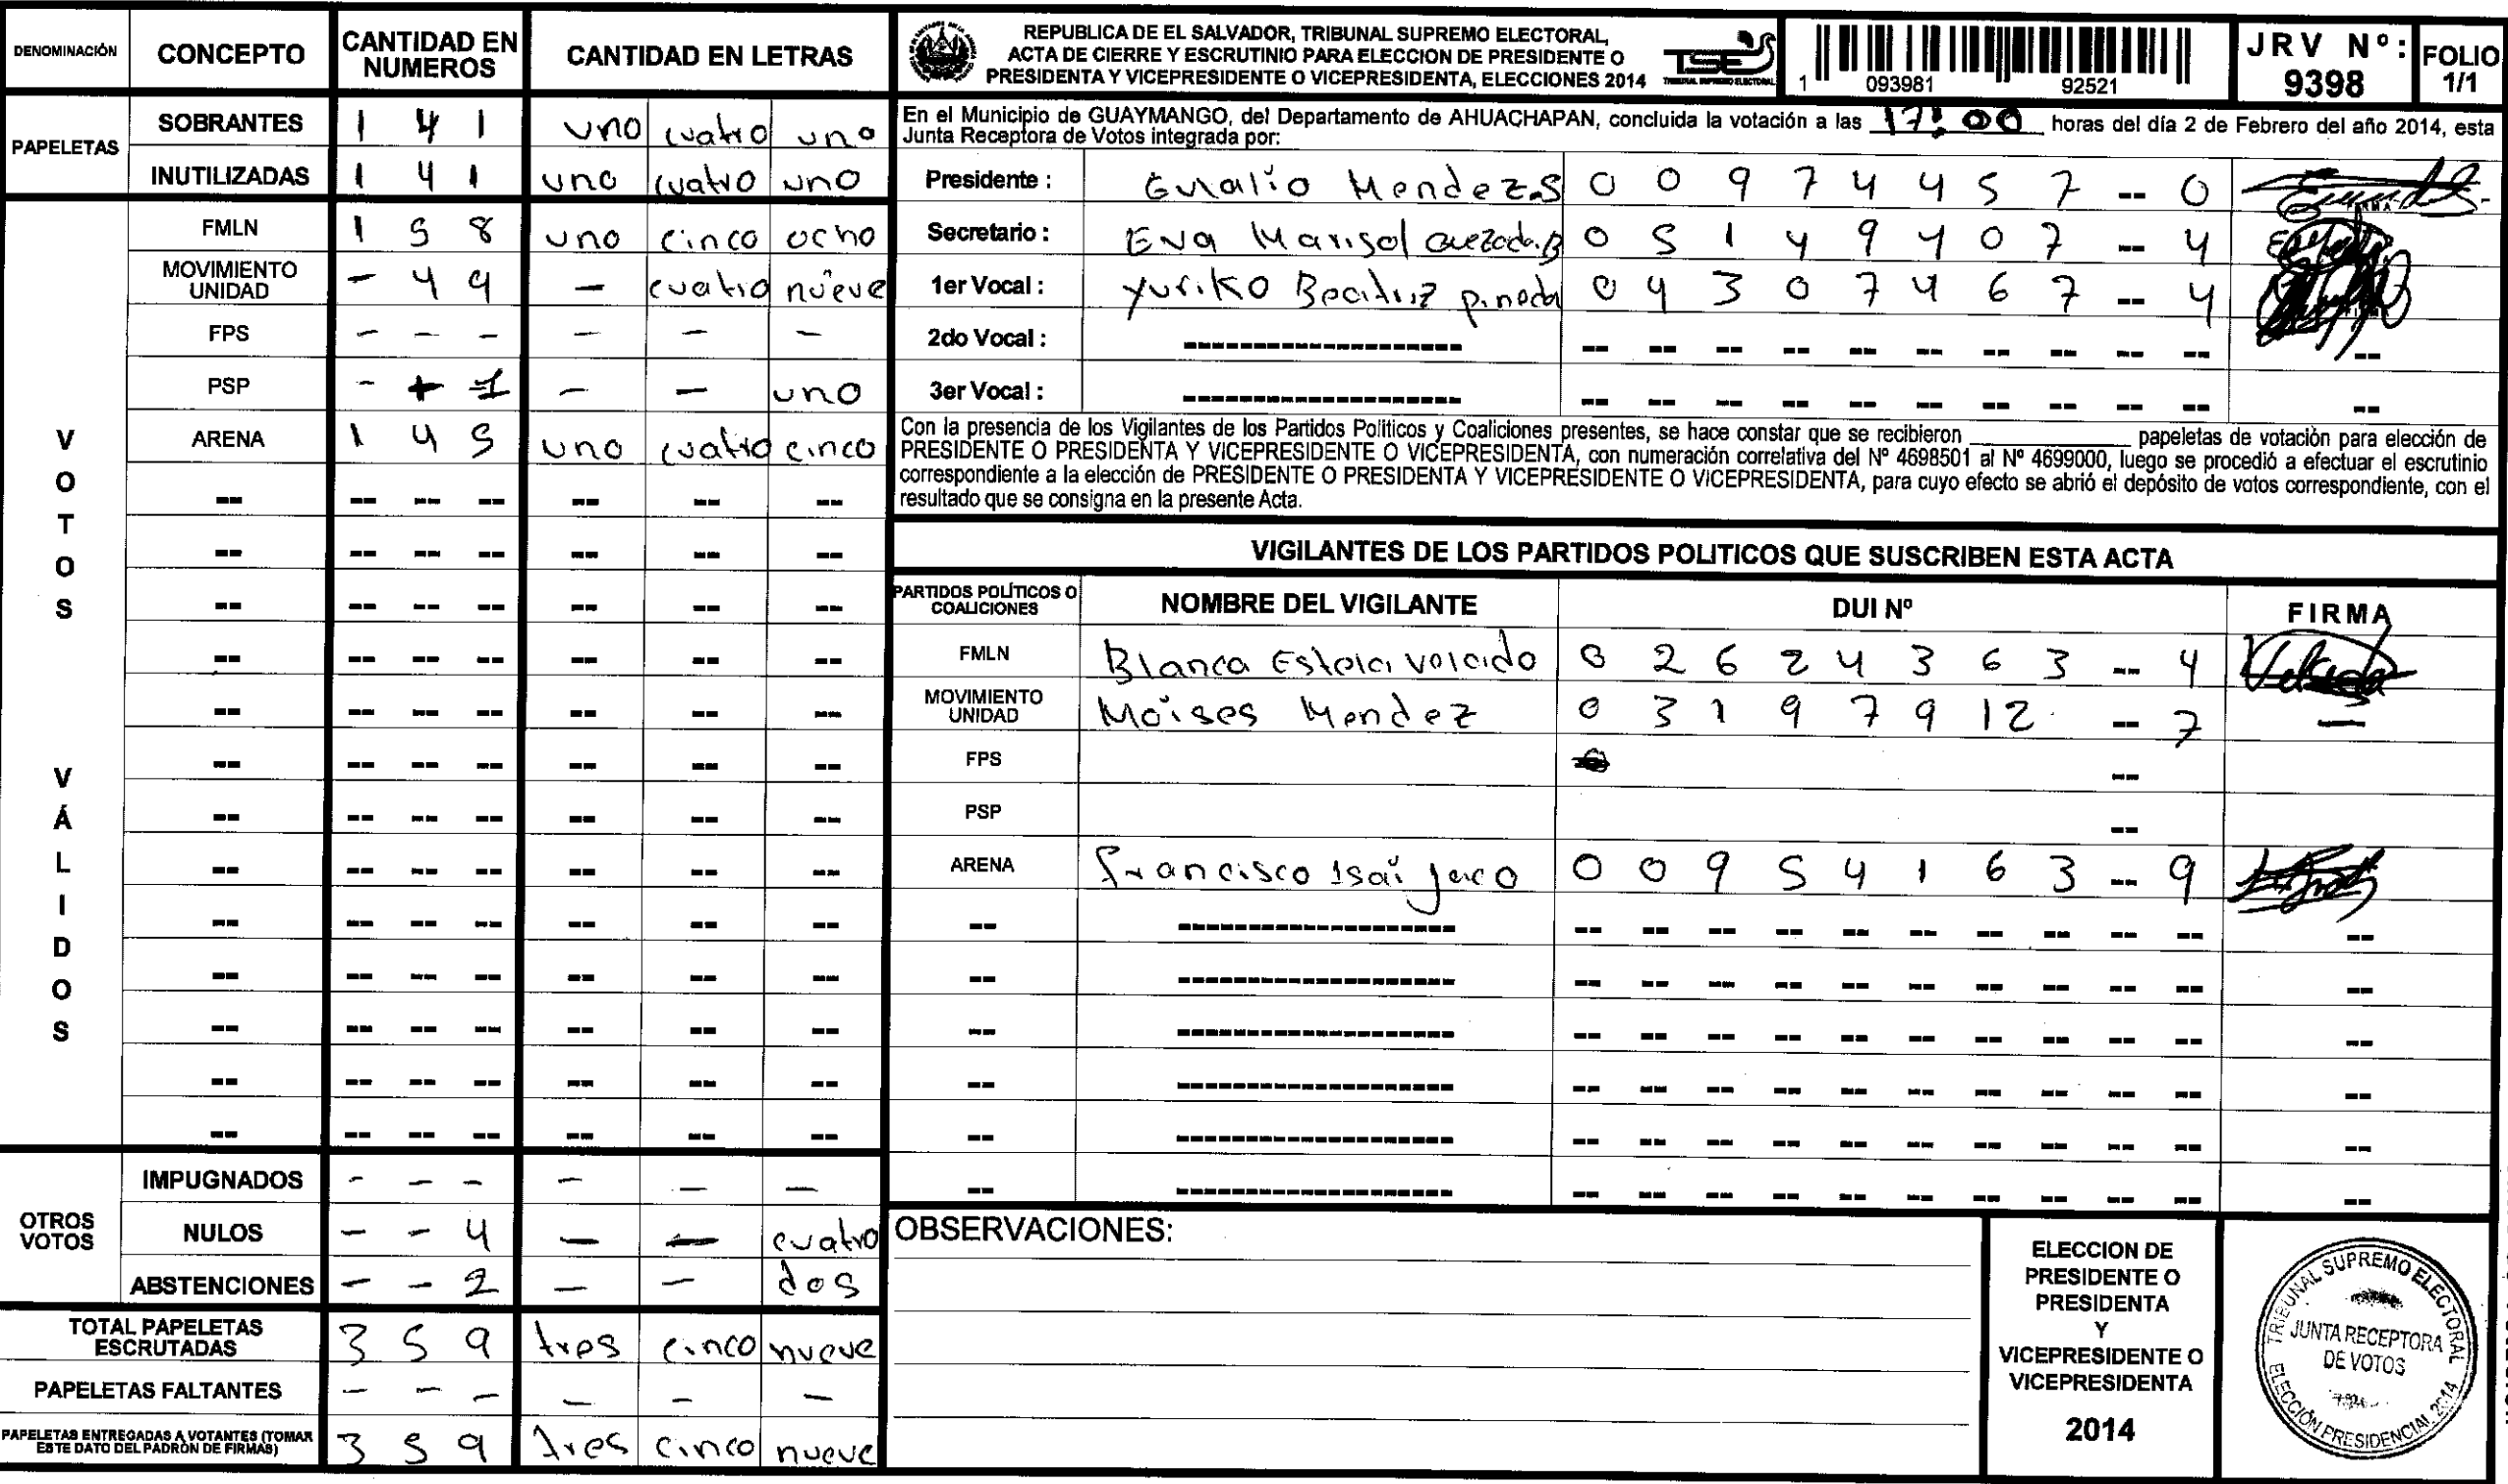 DENOMINACIÓN CONCEPTO CANTIDAD EN NUMEROS CANTIDAD EN LETRAS
PAPELETAS
SOBRANTES 1 4 1 uno cuatro uno
INUTILIZADAS 1 4 1 uno cuatro uno
VOTOS VÁLIDOS
FMLN 1 5 8 uno cinco ocho
MOVIMIENTO UNIDAD - 4 9 - cuatro nueve
FPS - - - - - -
PSP - + 1 - - uno
ARENA 1 4 5 uno cuatro cinco
-- -- -- -- -- -- --
-- -- -- -- -- -- --
-- -- -- -- -- -- --
-- -- -- -- -- -- --
-- -- -- -- -- -- --
-- -- -- -- -- -- --
-- -- -- -- -- -- --
-- -- -- -- -- -- --
-- -- -- -- -- -- --
-- -- -- -- -- -- --
-- -- -- -- -- -- --
-- -- -- -- -- -- --
-- -- -- -- -- -- --
OTROS VOTOS
IMPUGNADOS - - - - - -
NULOS - - 4 - - cuatro
ABSTENCIONES - - 2 - - dos
TOTAL PAPELETAS ESCRUTADAS 3 5 9 tres cinco nueve
PAPELETAS FALTANTES - - - - - -
PAPELETAS ENTREGADAS A VOTANTES (TOMAR ESTE DATO DEL PADRÓN DE FIRMAS) 3 5 9 tres cinco nueve
REPUBLICA DE EL SALVADOR, TRIBUNAL SUPREMO ELECTORAL,
ACTA DE CIERRE Y ESCRUTINIO PARA ELECCION DE PRESIDENTE O
PRESIDENTA Y VICEPRESIDENTE O VICEPRESIDENTA, ELECCIONES 2014
TSE
TRIBUNAL SUPREMO ELECTORAL
1 093981 92521
JRV Nº: 9398
FOLIO 1/1
En el Municipio de GUAYMANGO, del Departamento de AHUACHAPAN, concluida la votación a las 17:00 horas del día 2 de Febrero del año 2014, esta
Junta Receptora de Votos integrada por:
Presidente : Eulalio Mendez S 0 0 9 7 4 4 5 7 -- 0
FIRMA
Secretario : Eva Marisol Quezada B 0 5 1 4 9 4 0 7 -- 4
1er Vocal : Yuriko Beatriz pineda 0 4 3 0 7 4 6 7 -- 4
2do Vocal : -------------------- -- -- -- -- -- -- -- -- -- -- --
3er Vocal : -------------------- -- -- -- -- -- -- -- -- -- -- --
Con la presencia de los Vigilantes de los Partidos Políticos y Coaliciones presentes, se hace constar que se recibieron ________ papeletas de votación para elección de
PRESIDENTE O PRESIDENTA Y VICEPRESIDENTE O VICEPRESIDENTA, con numeración correlativa del Nº 4698501 al Nº 4699000, luego se procedió a efectuar el escrutinio
correspondiente a la elección de PRESIDENTE O PRESIDENTA Y VICEPRESIDENTE O VICEPRESIDENTA, para cuyo efecto se abrió el depósito de votos correspondiente, con el
resultado que se consigna en la presente Acta.
VIGILANTES DE LOS PARTIDOS POLITICOS QUE SUSCRIBEN ESTA ACTA
PARTIDOS POLÍTICOS O COALICIONES NOMBRE DEL VIGILANTE DUI Nº FIRMA
FMLN Blanca Estela Velado 0 2 6 2 4 3 6 3 -- 4
MOVIMIENTO UNIDAD Moises Mendez 0 3 1 9 7 9 1 2 -- 7 -
FPS --
PSP --
ARENA Francisco Isaí Jaco 0 0 9 5 4 1 6 3 -- 9
-- -------------------- -- -- -- -- -- -- -- -- -- -- --
-- -------------------- -- -- -- -- -- -- -- -- -- -- --
-- -------------------- -- -- -- -- -- -- -- -- -- -- --
-- -------------------- -- -- -- -- -- -- -- -- -- -- --
-- -------------------- -- -- -- -- -- -- -- -- -- -- --
-- -------------------- -- -- -- -- -- -- -- -- -- -- --
OBSERVACIONES:
ELECCION DE
PRESIDENTE O
PRESIDENTA
Y
VICEPRESIDENTE O
VICEPRESIDENTA
2014
TRIBUNAL SUPREMO ELECTORAL
JUNTA RECEPTORA
DE VOTOS
ELECCIÓN PRESIDENCIAL 2014